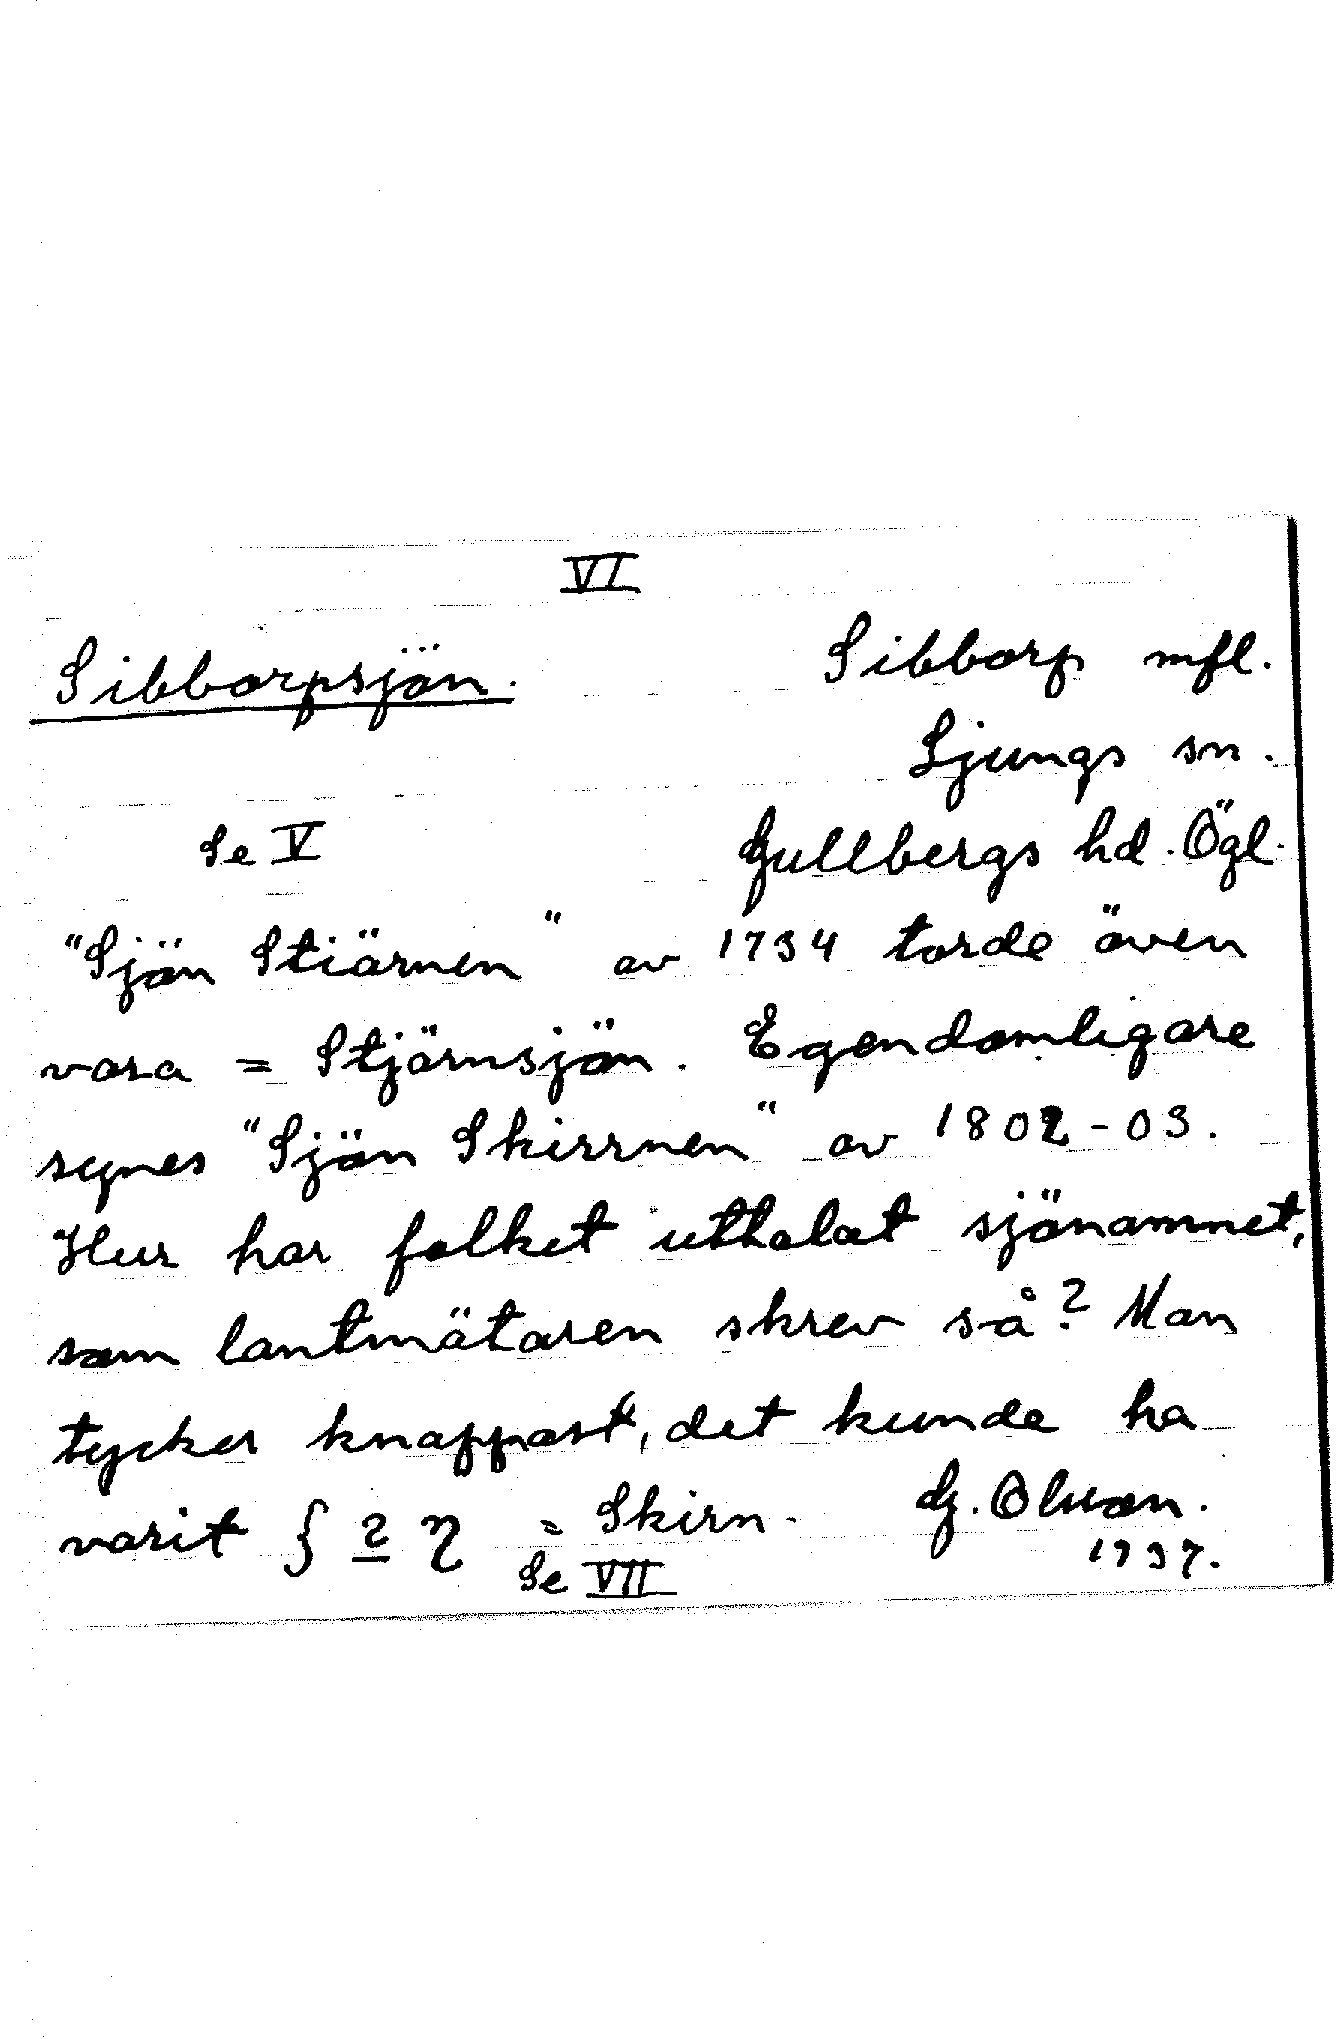 VI
Sibborpsjön. Sibborp mfl.
Ljungs sn.
Se V Gullbergs hd. Ögl.
"Sjön Stiärnen" av 1734 torde även
vara = Stjärnsjön. Egendomligare
synes "Sjön Skirrnen" av 1802-03.
Hur har folket uttalat sjönamnet,
som lantmätaren skrev så? Man
tycker knappast, det kunde ha
varit = Skirn. G. Olsson.
Se VII 1937.